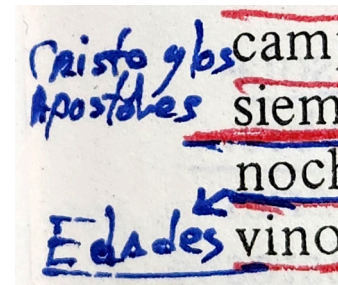 Cristo y los
Apostoles
Edades
camp
siem
noch
vino